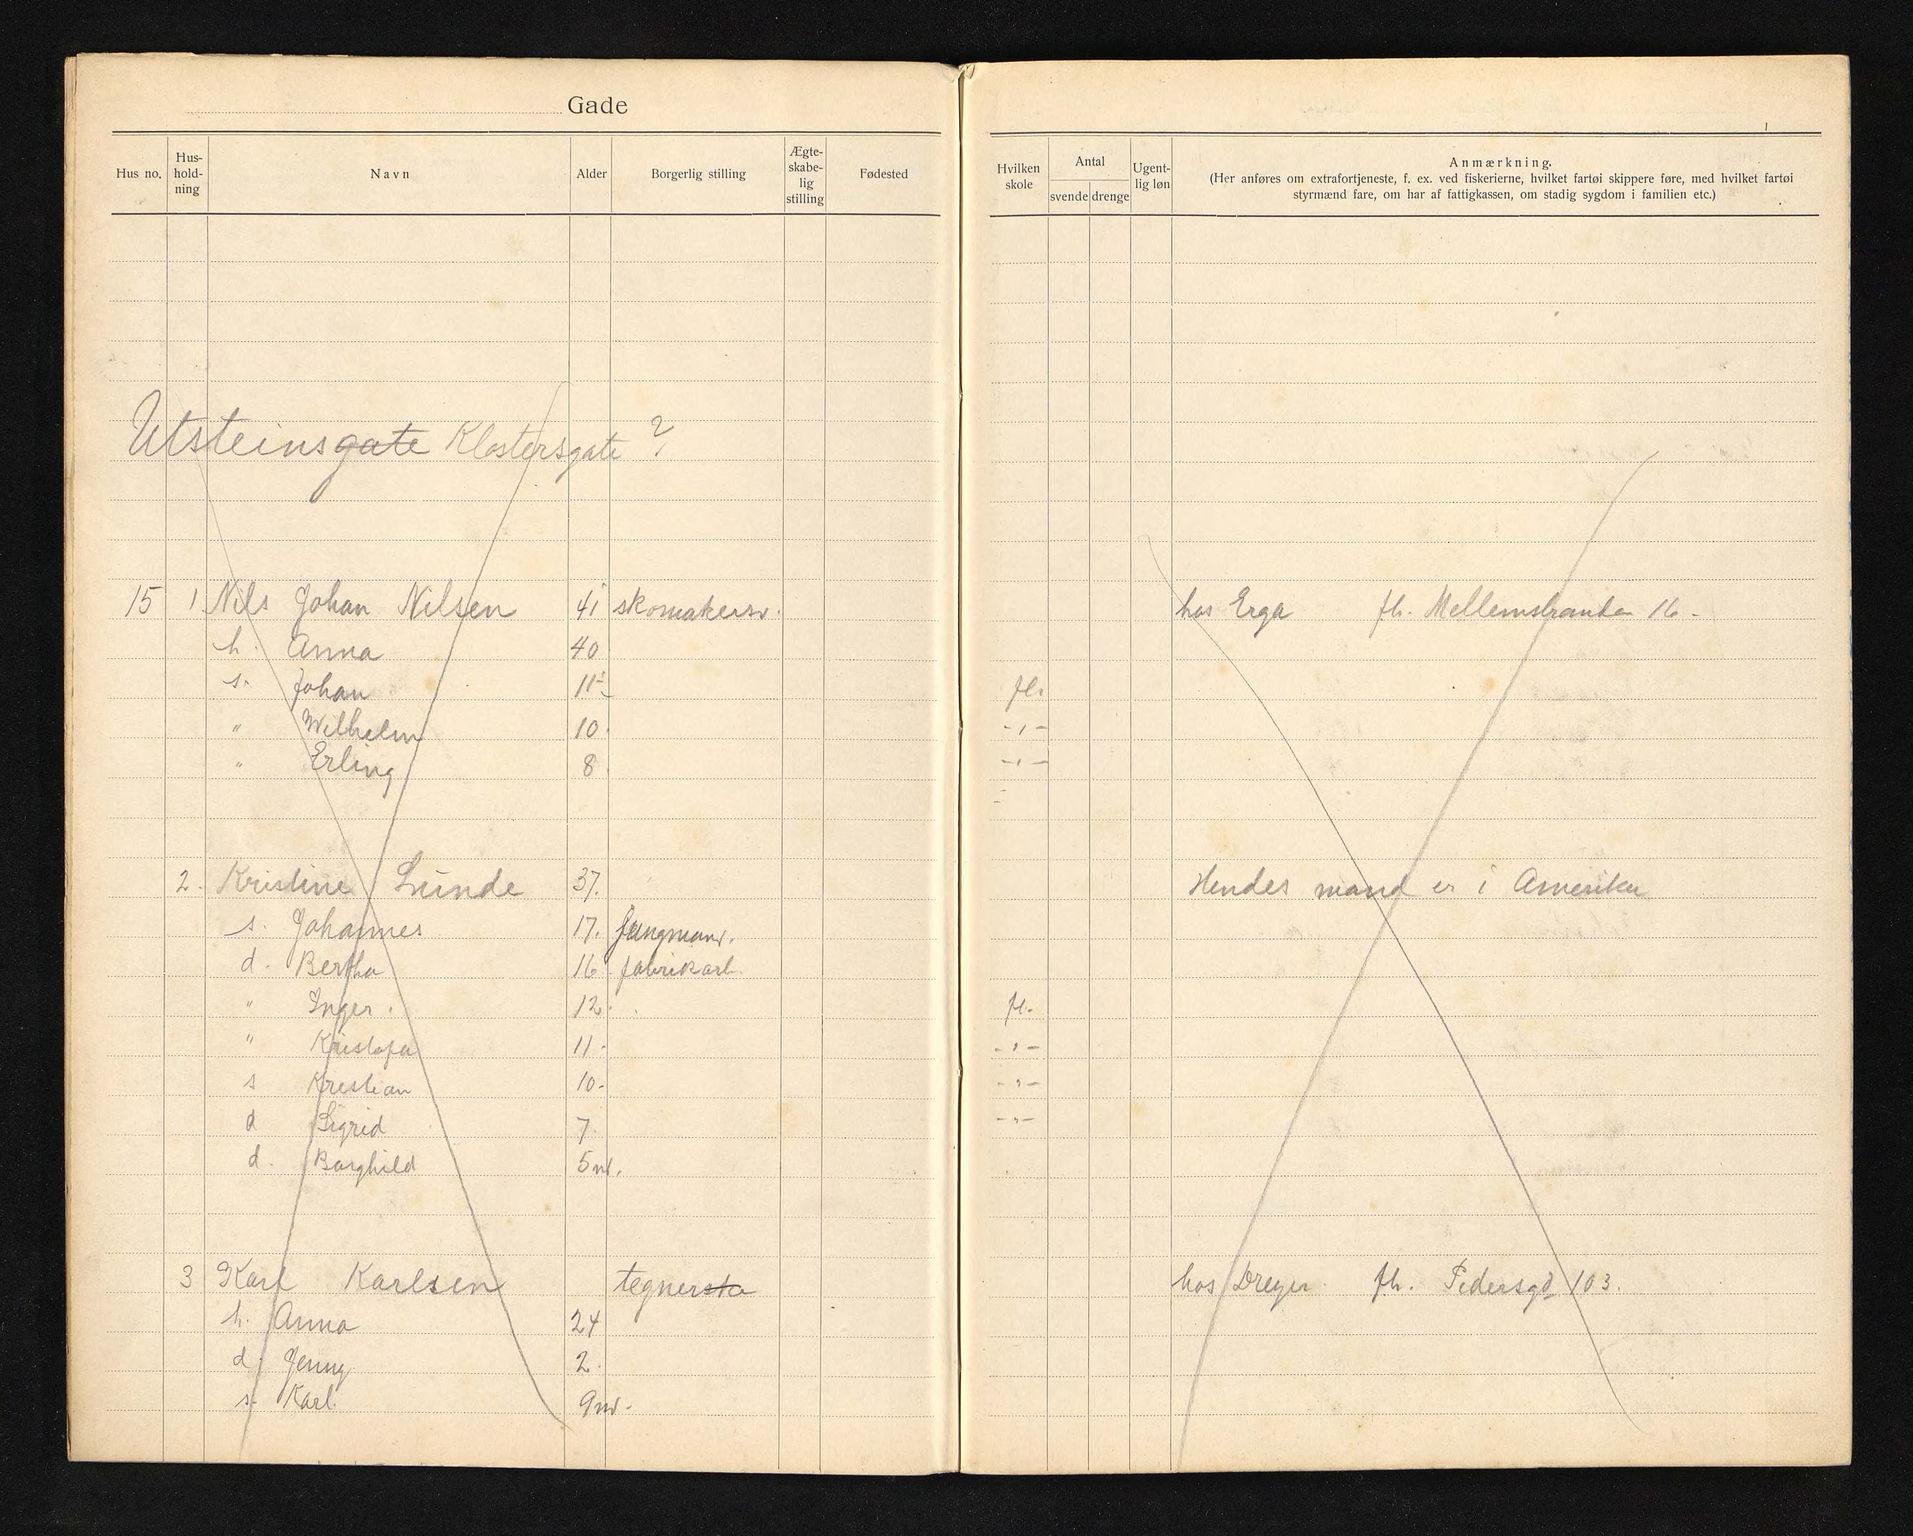 Gade
Hus no. Hus-hold-ning Navn Alder Borgerlig stilling Ægte-skabe-lig stilling Fødested
Hvilken skole Antal svende drenge Ugent-lig løn Anmærkning.
(Her anføres om extrafortjeneste, f. ex. ved fiskerierne, hvilket fartøi skippere føre, med hvilket fartøi
styrmænd fare, om har af fattigkassen, om stadig sygdom i familien etc.)
Utsteinsgate Klostersgate ?
15 1 Nils Johan Nilsen 41 skomakersv. hos Erga fh. Mellemstranden 16 -
h. Anna 40
s. Johan 11 fl.
" Wilhelm 10 - " -
" Erling 8 - " -
2. Kristine Lunde 37. Hendes mand er i Amerika
s. Johannes 17. Jungmand.
d. Bertha 16 fabrikarb.
" Inger. 12 fl.
" Kristofa 11 - - " -
s Kristian 10 - - " -
d Sigrid 7 - " -
d. Borghild 5 md.
3 Karl Karlsen tegnersta hos Dreyer. fh. Pedersgd 103.
h. Anna 24
d. Jenny 2
s. Karl. 9 md -